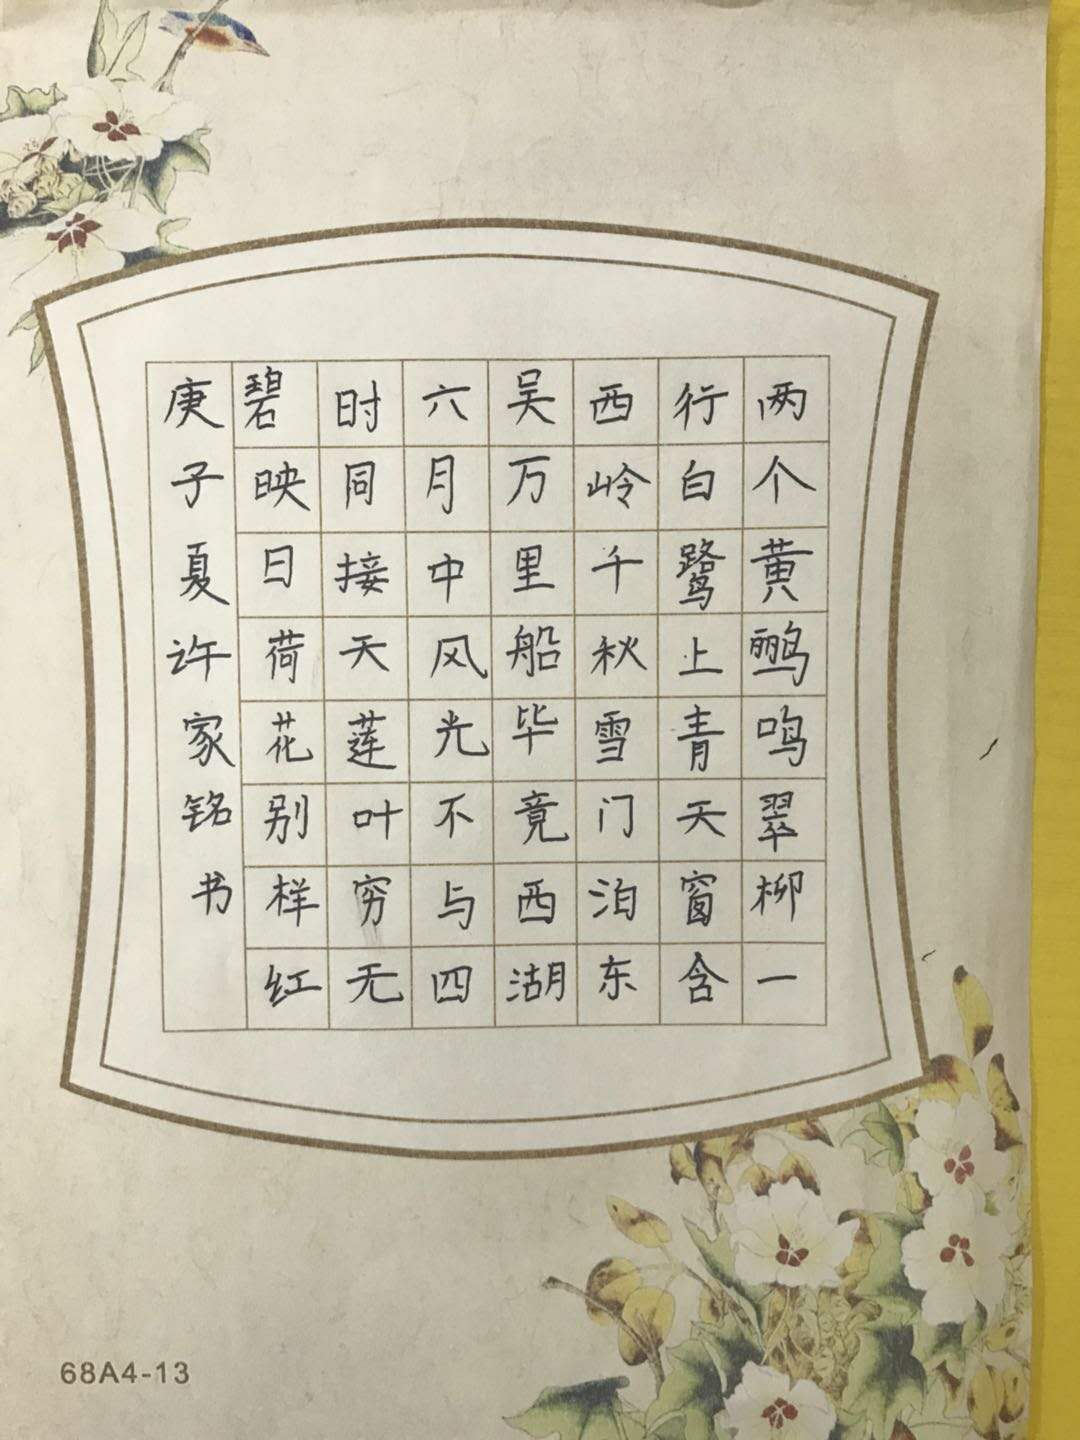 两个黄鹂鸣翠柳一
行白鹭上青天窗含
西岭千秋雪门泊东
吴万里船毕竟西湖
六月中风光不与四
时同接天莲叶穷无
碧映日荷花别样红
庚子夏许家铭书
68A4-13